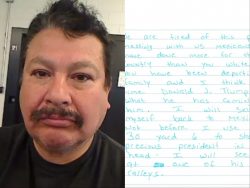 e are tired of this p
messing with us mexican
have done more for th
country than you white
you have been deport
family and I think
time Donald J. Trump
what he has
family
him. I will
myself back to mexic
not before I use
30 yard 6 to sh
precious president in
head. I will see
at one of his
ralleys.